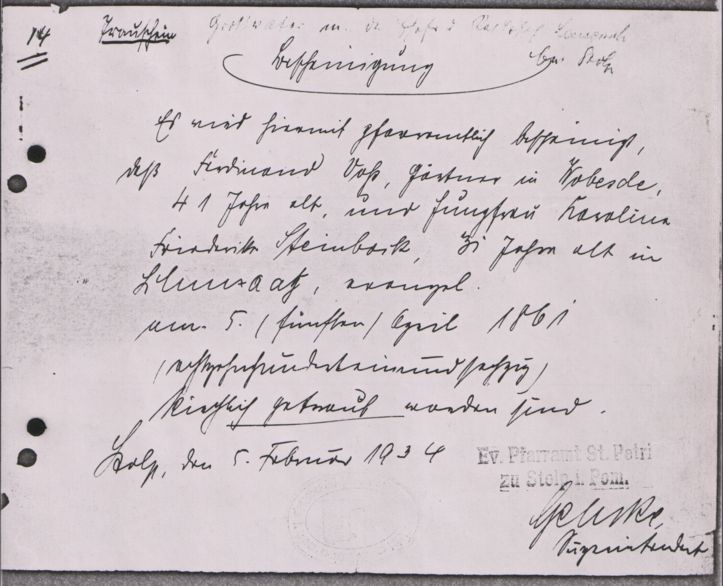 14
Trauschein
Großvater m.
bei Stolp
Bescheinigung
Es wird hiermit pfarramtlich bescheinigt,
daß Ferdinand Voß, Gärtner in Wobesde,
41 Jahre alt, und Jungfrau Karoline
Friederike Steinbock, 31 Jahre alt in
evangel.
am 5. (fünften) April 1861
(achtzehnhunderteinundsechzig)
kirchlich getraut worden sind.
Stolp, den 5. Februar 1934
Ev. Pfarramt St. Petri
zu Stolp i. Pom.
Superintendent